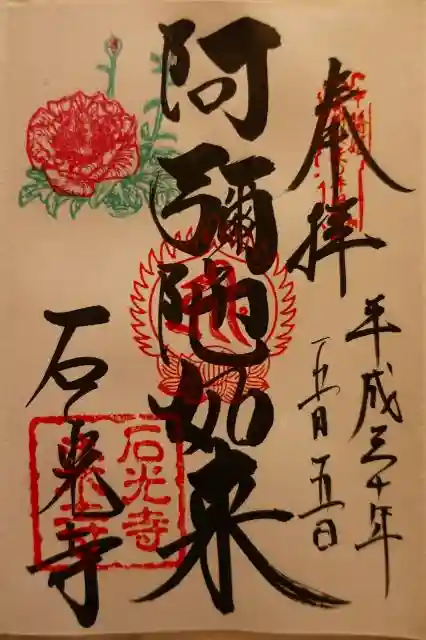 奉拝
平成三十年
五月五日
阿彌陀如来
石光寺
石光寺